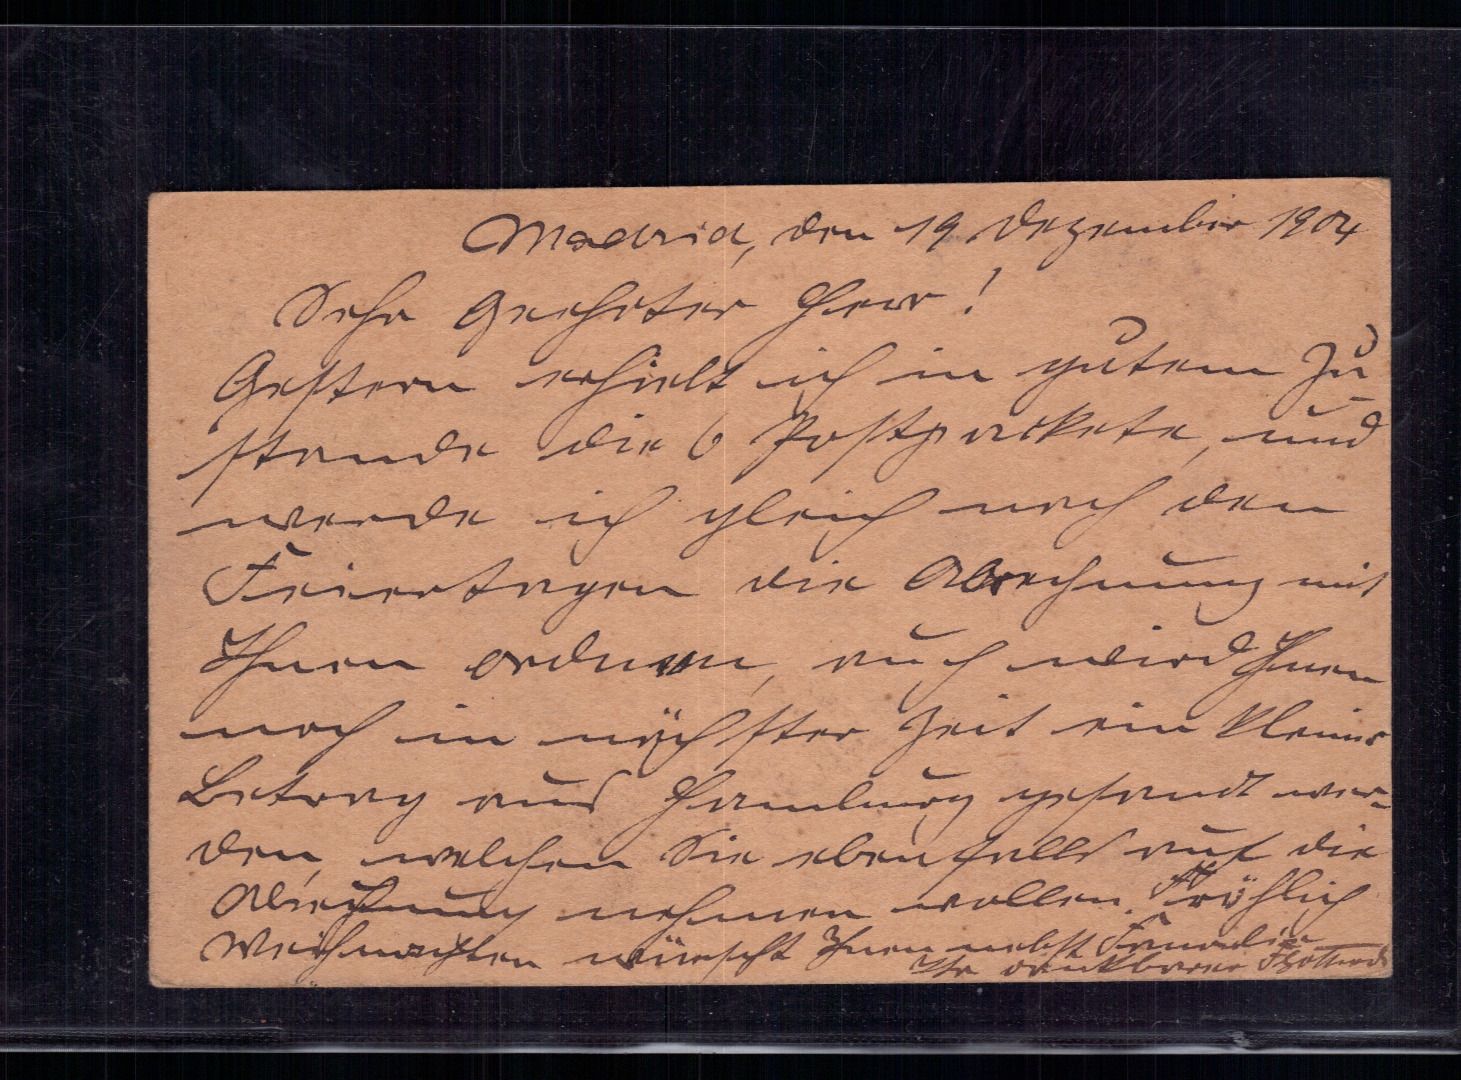 Madrid, den 19 Dezember 1904
Sehr Geehrter Herr!
Gestern erhielt ich in gutem Zu-
stande die 6 Postpackete, und
werde ich gleich nach den
Feiertagen die Abrechnung mit
Ihnen ordnen, auch wird Ihnen
noch in nächster Zeit ein kleiner
Betrag aus Hamburg gesandt wer-
den, welchen Sie ebenfalls auf die
Abrechnung nehmen wollen. Fröhlich
Weihnachten wünscht Ihnen nebst Familie
Ihr dankbarer